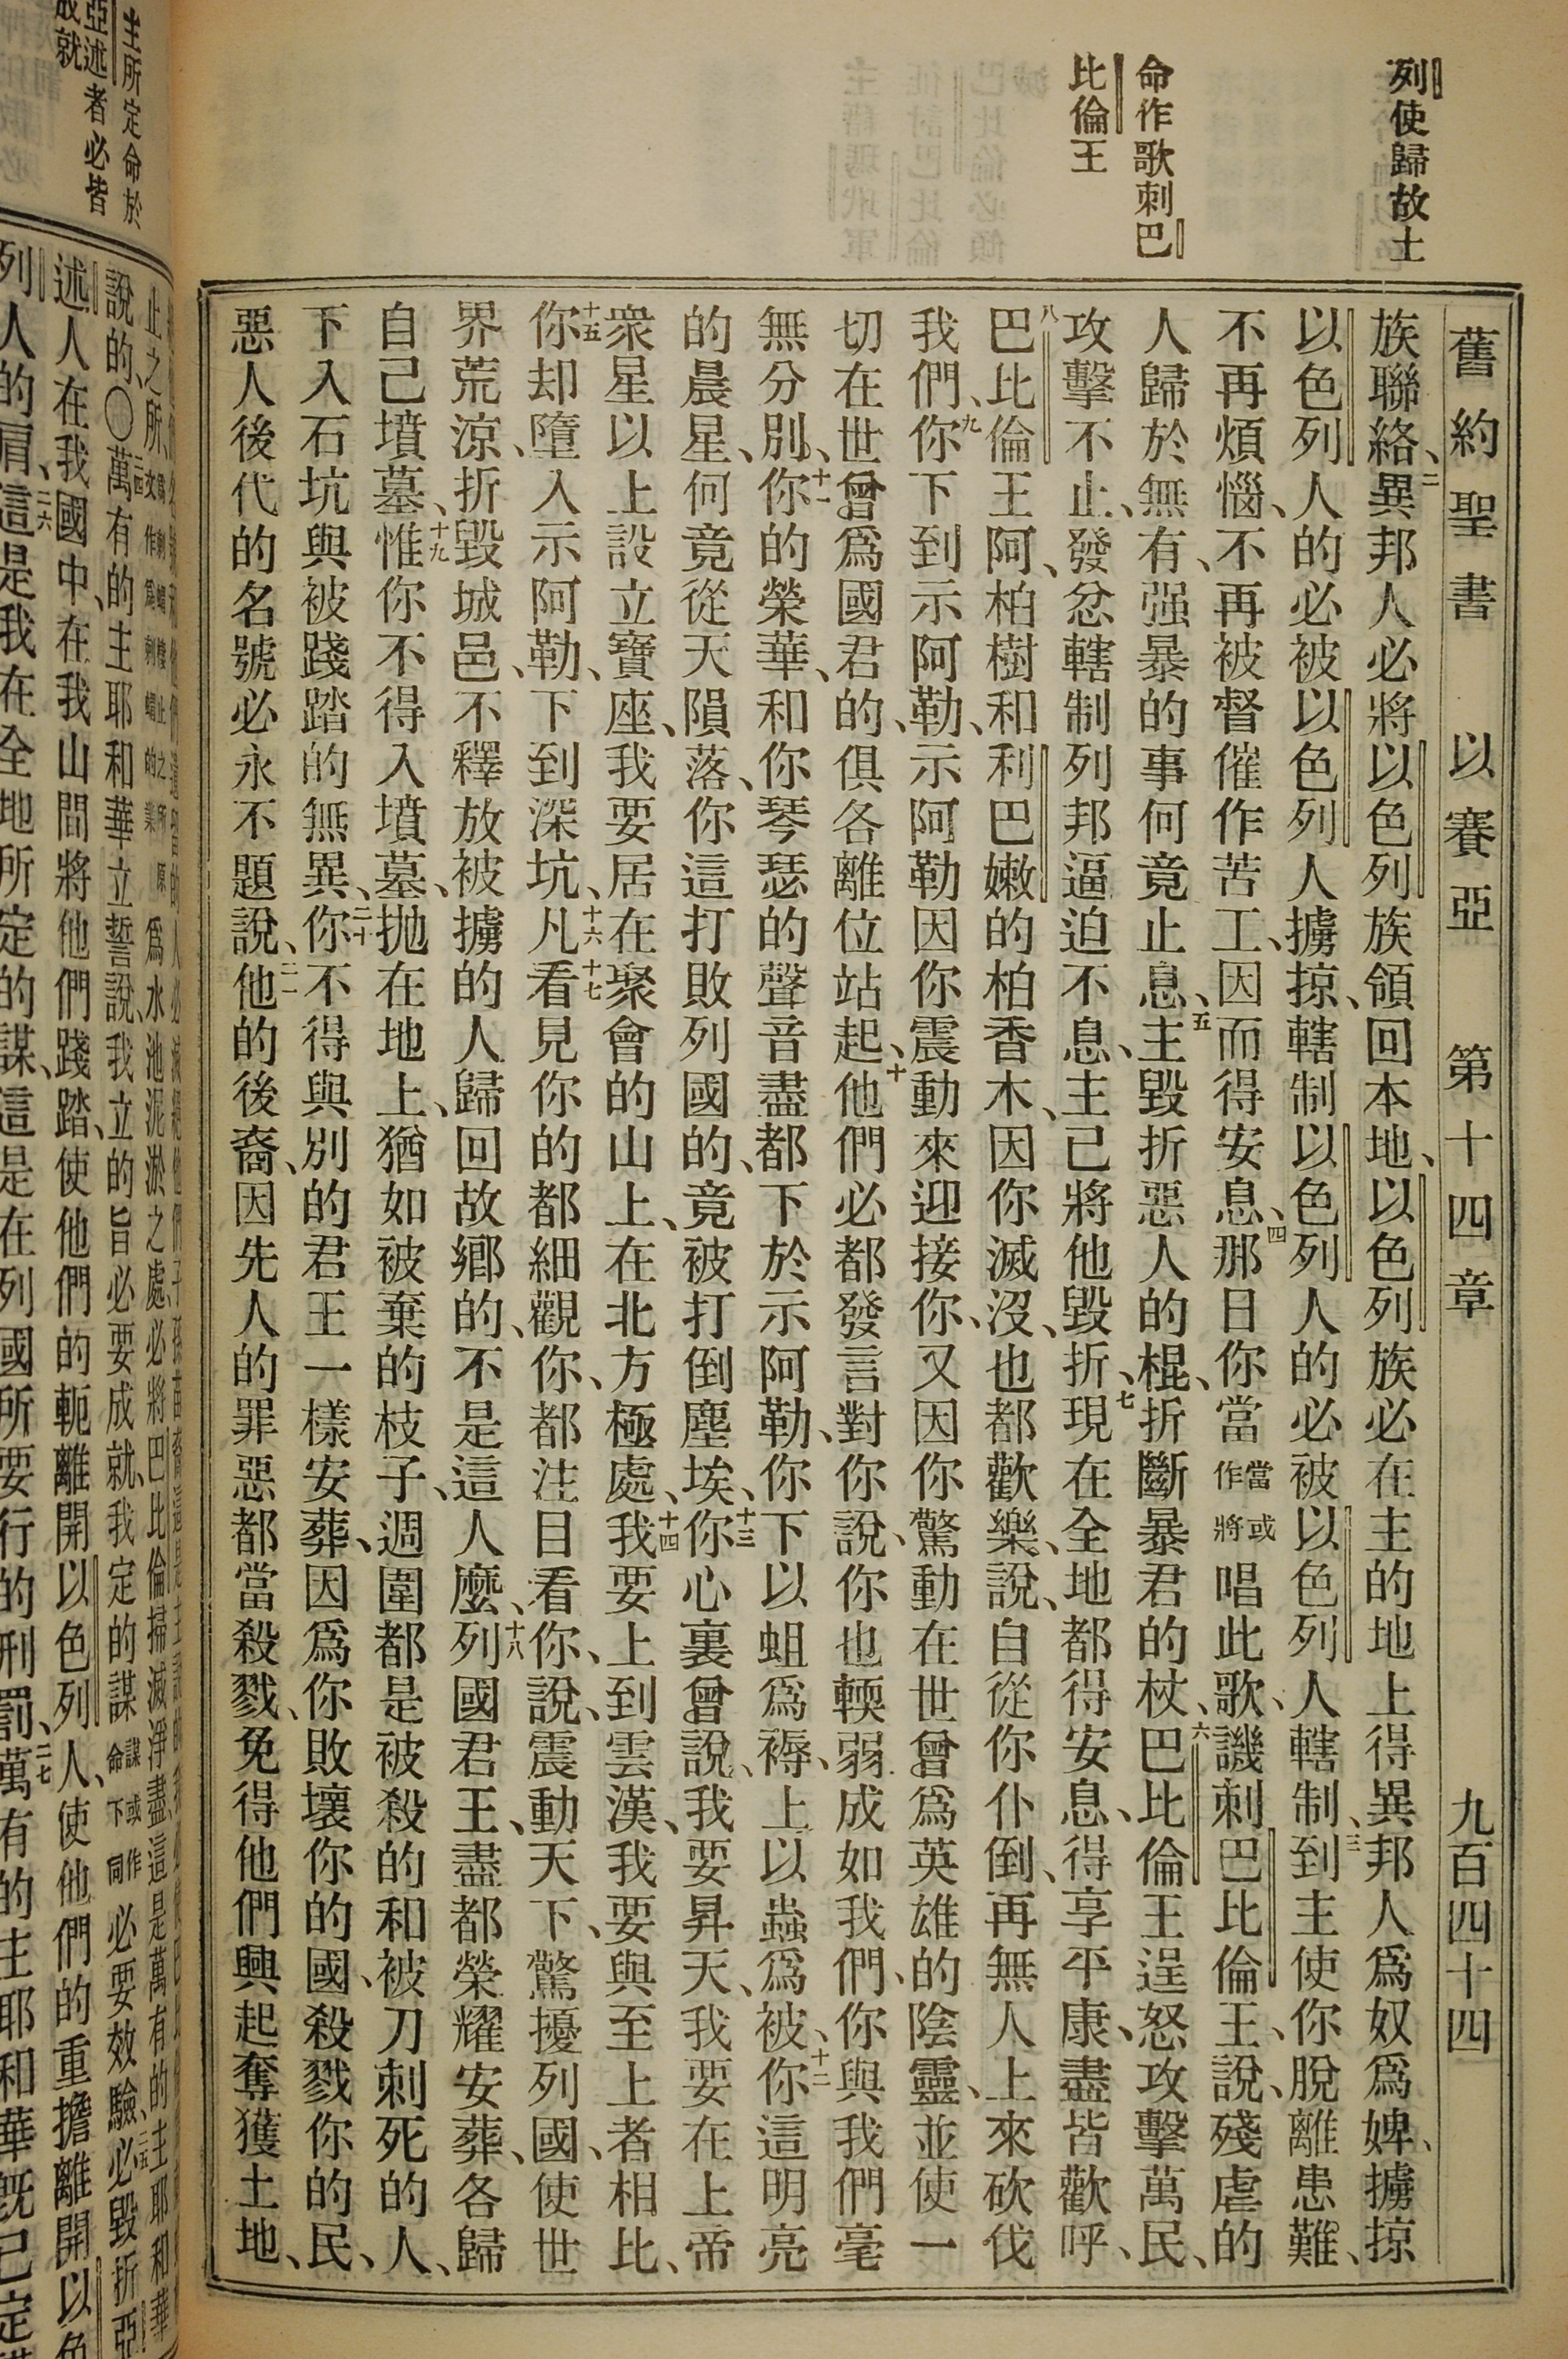 舊約聖書 以賽亞 第十四章 九百四十四
列使歸故土
命作歌刺巴
比倫王
族聯絡、二異邦人必將以色列族領回本地、以色列族必在主的地上得異邦人爲奴爲婢、擄掠
以色列人的必被以色列人擄掠、轄制以色列人的必被以色列人轄制、三到主使你脫離患難、
不再煩惱、不再被督催作苦工、因而得安息、四那日你當當或作將唱此歌、譏刺巴比倫王、說、殘虐的
人歸於無有、强暴的事何竟止息、五主毀折惡人的棍、折斷暴君的杖、六巴比倫王逞怒攻擊萬民、
攻擊不止、發忿轄制列邦逼迫不息、主已將他毀折、七現在全地都得安息、得享平康、盡皆歡呼、
八巴比倫王阿、柏樹和利巴嫩的柏香木、因你滅沒、也都歡樂、說、自從你仆倒、再無人上來砍伐
我們、九你下到示阿勒、示阿勒因你震動來迎接你、又因你驚動在世曾爲英雄的陰靈、並使一
切在世曾爲國君的、俱各離位站起、十他們必都發言對你說、你也輭弱成如我們、你與我們毫
無分別、十一你的榮華、和你琴瑟的聲音盡都下於示阿勒、你下以蛆爲褥、上以蟲爲被、十二你這明亮
的晨星、何竟從天隕落、你這打敗列國的、竟被打倒塵埃、十三你心裏曾說、我要昇天、我要在上帝
衆星以上設立寶座、我要居在聚會的山上、在北方極處、十四我要上到雲漢、我要與至上者相比、
十五你却墮入示阿勒、下到深坑、十六凡看十七見你的都細觀你、都注目看你、說、震動天下、驚擾列國、使世
界荒涼、折毀城邑、不釋放被擄的人歸回故鄉的、不是這人麼、十八列國君王、盡都榮耀安葬、各歸
自己墳墓、十九惟你不得入墳墓、抛在地上、猶如被棄的枝子、週圍都是被殺的和被刀刺死的人、
下入石坑與被踐踏的無異、二十你不得與別的君王一樣安葬、因爲你敗壞你的國、殺戮你的民、
惡人後代的名號必永不題說、二一他的後裔、因先人的罪惡都當殺戮、免得他們興起奪獲土地、
主所定命於
亞述者必皆
成就
說的、〇二四萬有的主耶和華立誓說、我立的旨必要成就、我定的謀謀或作命下同必要效驗、二五必毀折亞
述人在我國中、在我山間將他們踐踏、使他們的軛離開以色列人、使他們的重擔離開以色
列人的肩、二六這是我在全地所定的謀、這是在列國所要行的刑罰、二七萬有的主耶和華旣已定